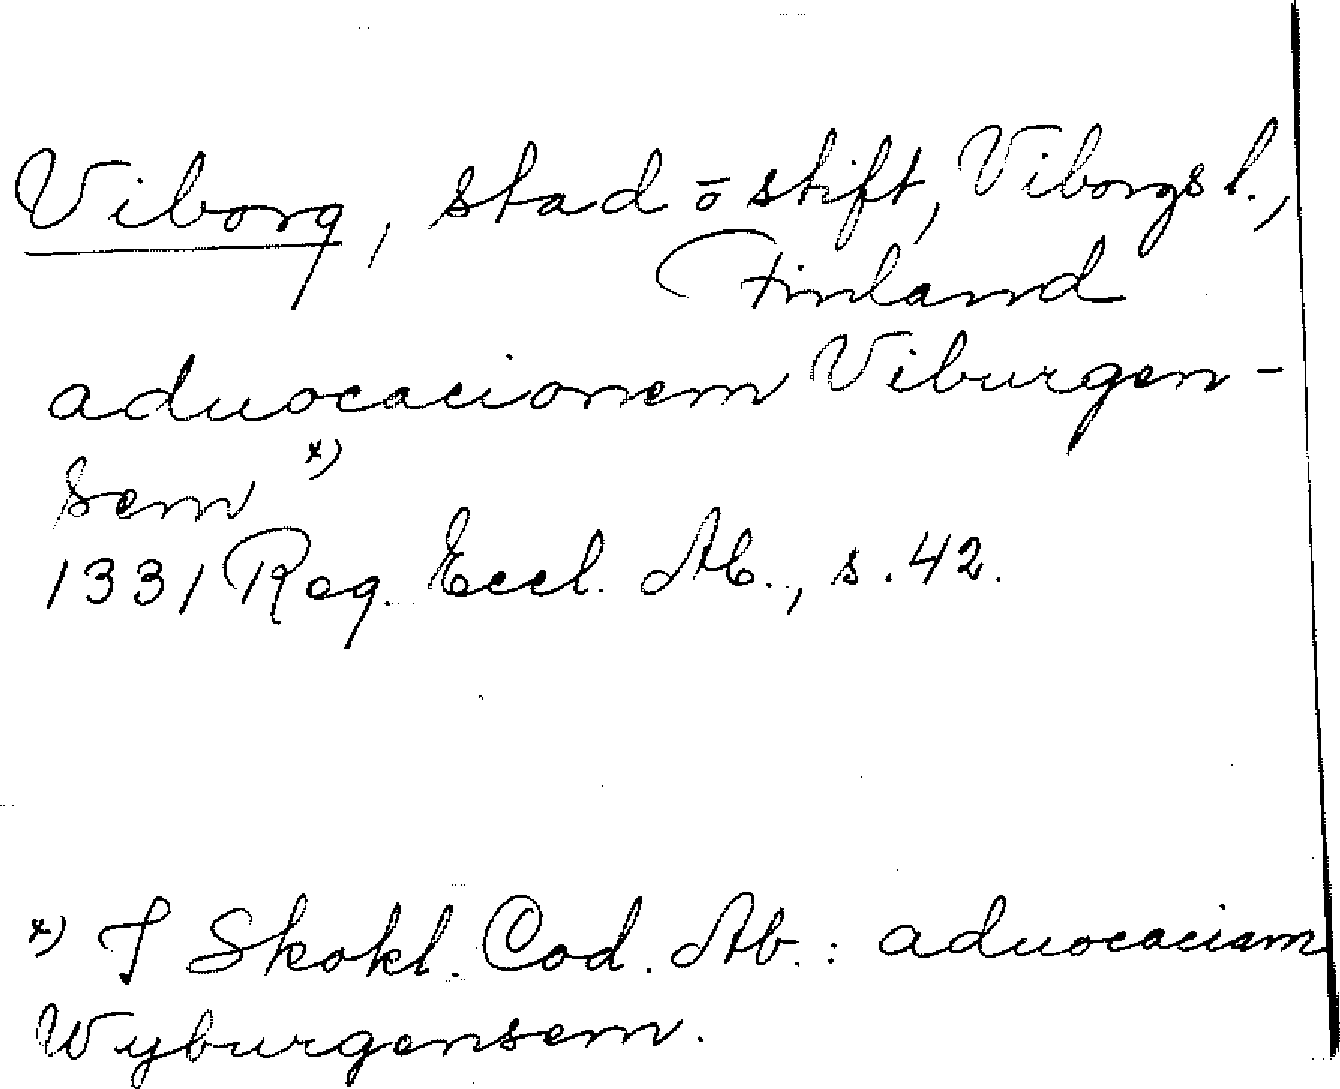 Viborg, stad o stift, Viborgs l.,
Finland
aduocacionem Viburgen-
sem x)
1331 Reg. Eccl. Ab., s. 42.
x) I Skokl. Cod. Ab.: aduocaciam
Wyburgensem.